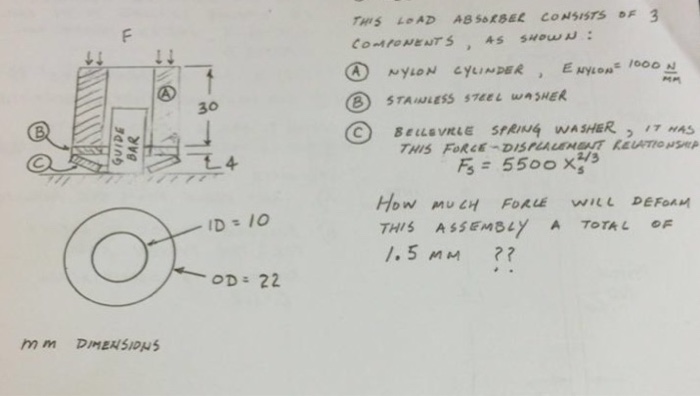 THIS LOAD ABSORBER CONSISTS OF 3
COMPONENTS, AS SHOWN:
Ⓐ NYLON CYLINDER, E NYLON = 1000 N/MM
Ⓑ STAINLESS STEEL WASHER
Ⓒ BELLEVILLE SPRING WASHER, IT HAS
THIS FORCE-DISPLACEMENT RELATIONSHIP
Fs = 5500 Xs^2/3
HOW MUCH FORCE WILL DEFORM
THIS ASSEMBLY A TOTAL OF
1.5 MM ??
F
A
30
B
C
GUIDE
BAR
4
ID = 10
OD = 22
MM DIMENSIONS